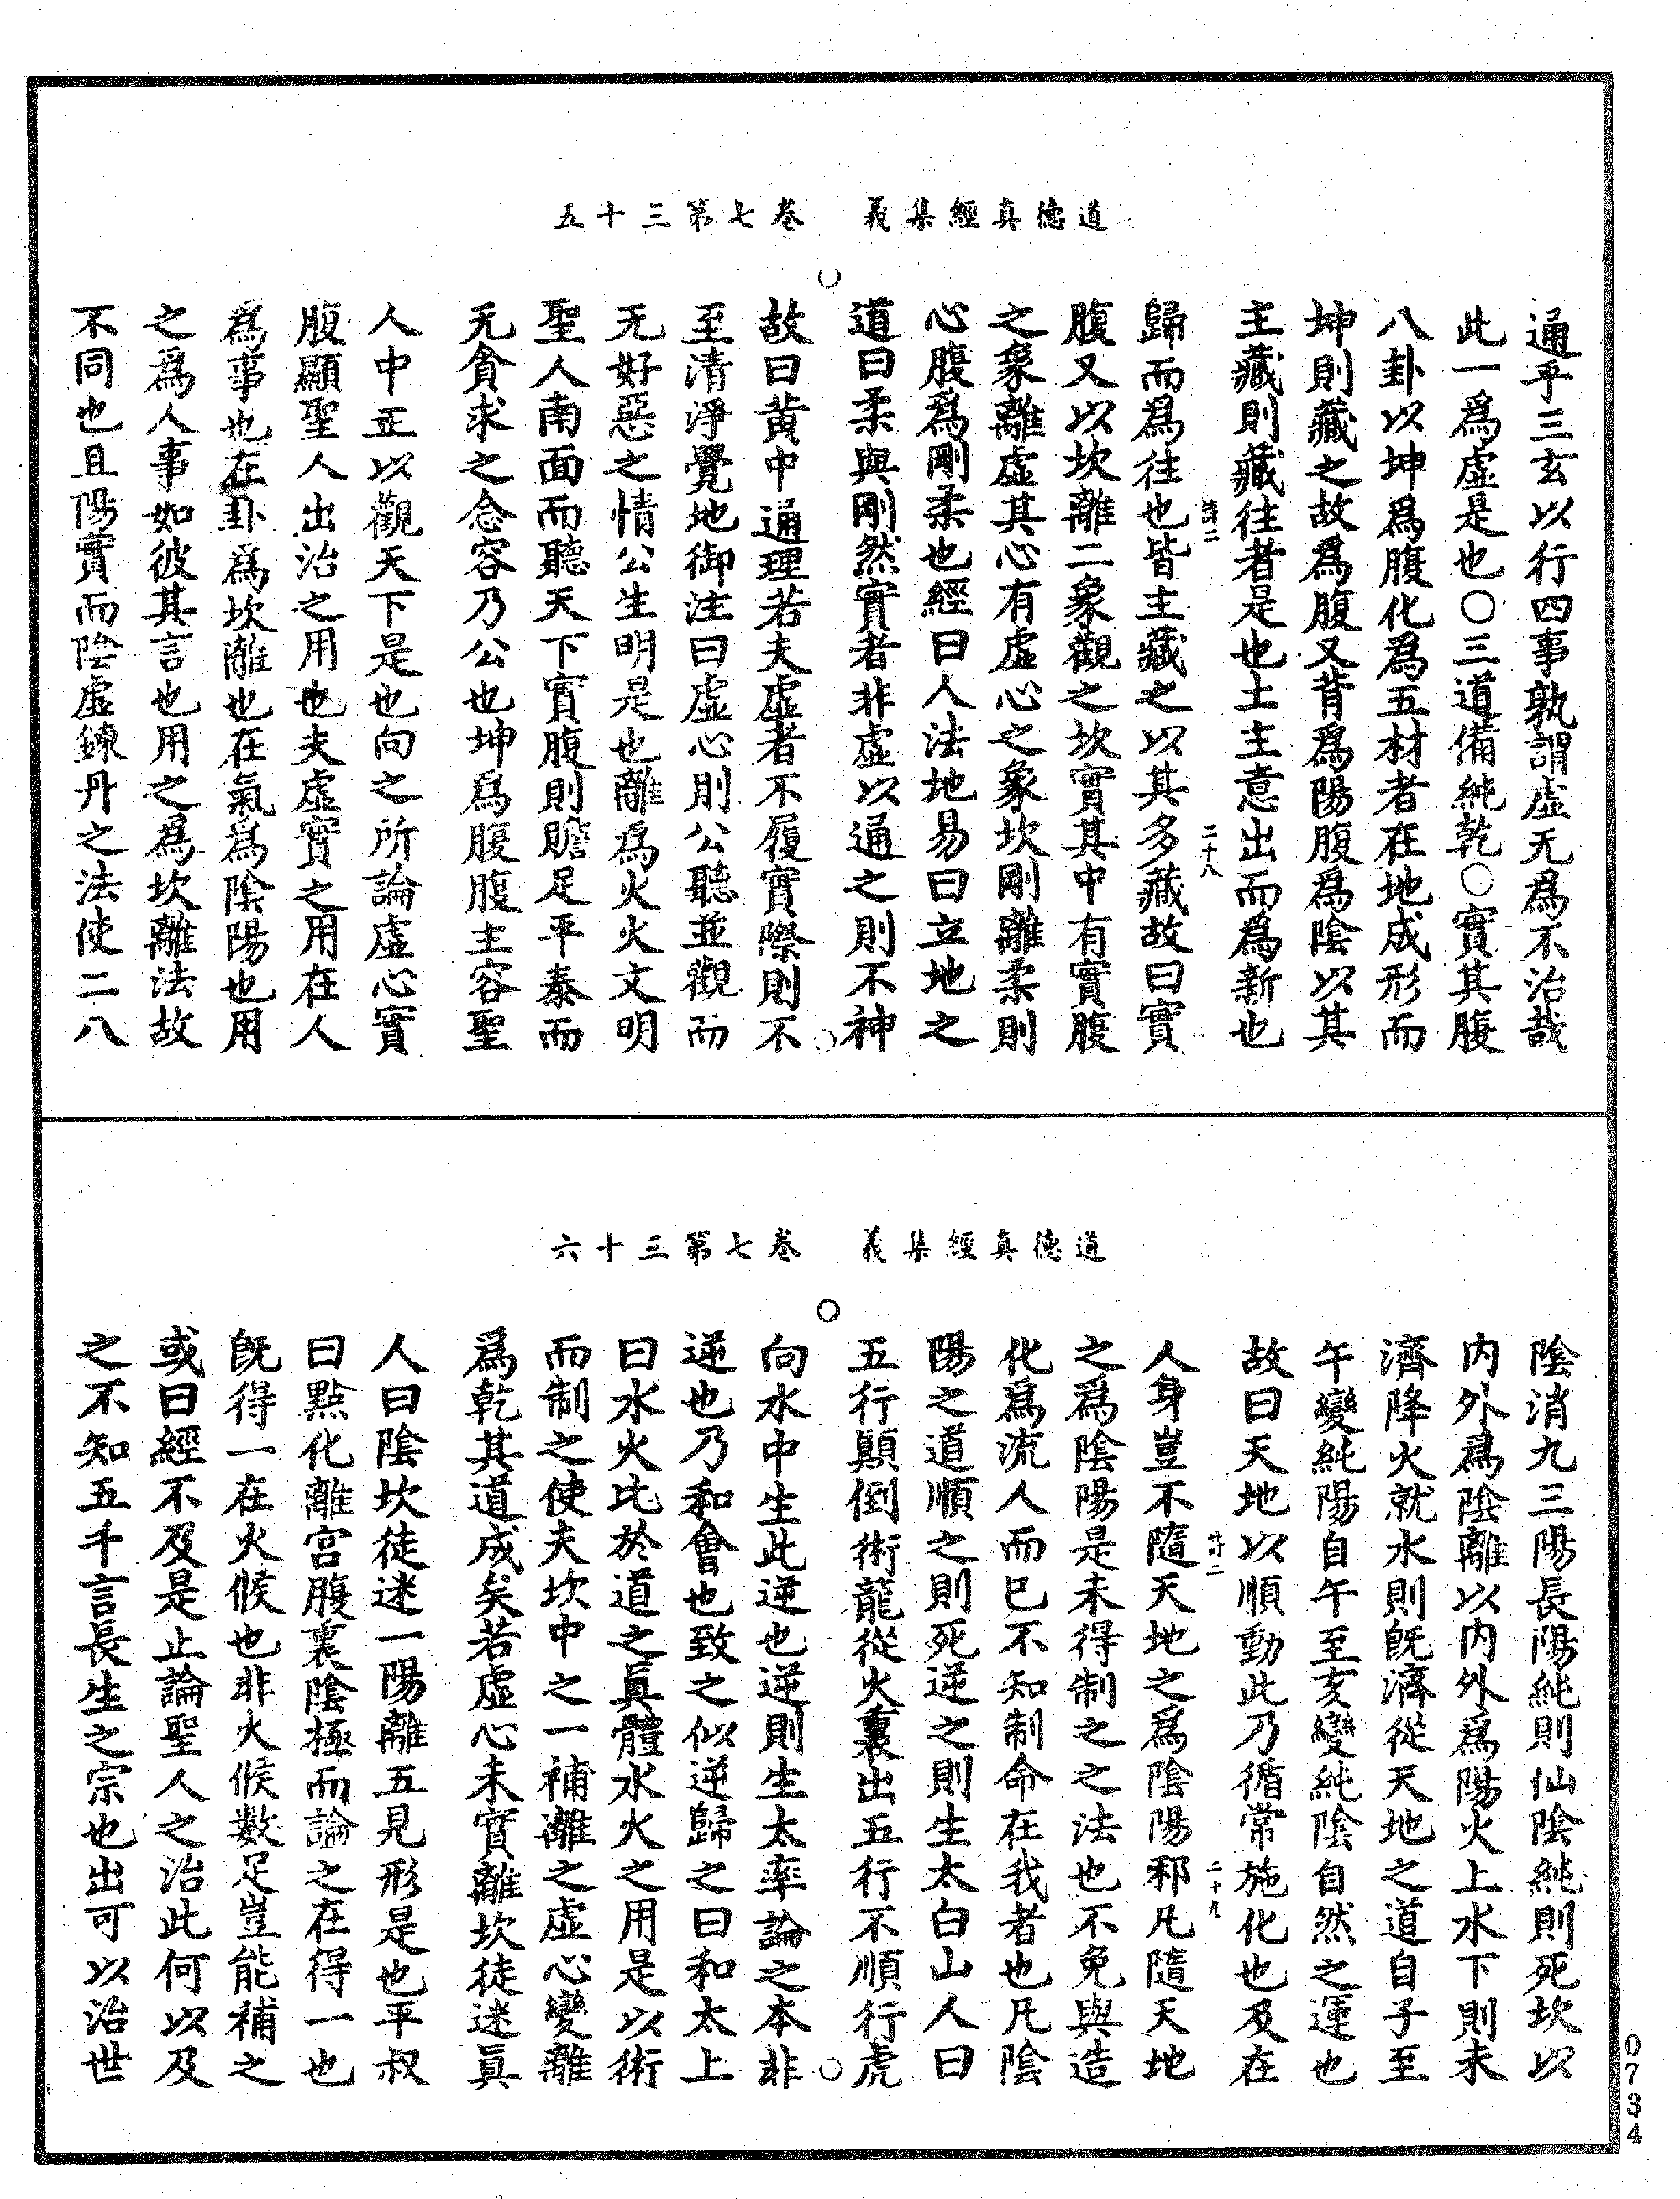 道德真經集義　卷七第三十五
通乎三玄以行四事孰謂虛无爲不治哉
此一爲虛是也〇三道備純乾〇實其腹
八卦以坤爲腹化爲五材者在地成形而
坤則藏之故爲腹又背爲陽腹爲陰以其
主藏則藏往者是也土主意出而爲新也
二十八
歸而爲往也皆主藏之以其多藏故曰實
腹又以坎離二象觀之坎實其中有實腹
之象離虛其心有虛心之象坎剛離柔則
心腹爲剛柔也經曰人法地易曰立地之
道曰柔與剛然實者非虛以通之則不神
故曰黃中通理若夫虛者不履實際則不
至清淨覺地御注曰虛心則公聽並觀而
无好惡之情公生明是也離爲火火文明
聖人南面而聽天下實腹則贍足平泰而
无貪求之念容乃公也坤爲腹腹主容聖
人中正以觀天下是也向之所論虛心實
腹顯聖人出治之用也夫虛實之用在人
爲事也在卦爲坎離也在氣爲陰陽也用
之爲人事如彼其言也用之爲坎離法故
不同也且陽實而陰虛鍊丹之法使二八
道德真經集義　卷七第三十六
陰消九三陽長陽純則仙陰純則死坎以
內外爲陰離以內外爲陽火上水下則未
濟降火就水則旣濟從天地之道自子至
午變純陽自午至亥變純陰自然之運也
故曰天地以順動此乃循常施化也及在
二十九
人身豈不隨天地之爲陰陽邪凡隨天地
之爲陰陽是未得制之之法也不免與造
化爲流人而已不知制命在我者也凡陰
陽之道順之則死逆之則生太白山人曰
五行顚倒術龍從火裏出五行不順行虎
向水中生此逆也逆則生太率論之本非
逆也乃和會也致之似逆歸之曰和太上
曰水火比於道之眞體水火之用是以術
而制之使夫坎中之一補離之虛心變離
爲乾其道成矣若虛心未實離坎徒迷眞
人曰陰坎徒迷一陽離五見形是也平叔
曰點化離宮腹裏陰極而論之在得一也
旣得一在火候也非火候數足豈能補之
或曰經不及是止論聖人之治此何以及
之不知五千言長生之宗也出可以治世
0734